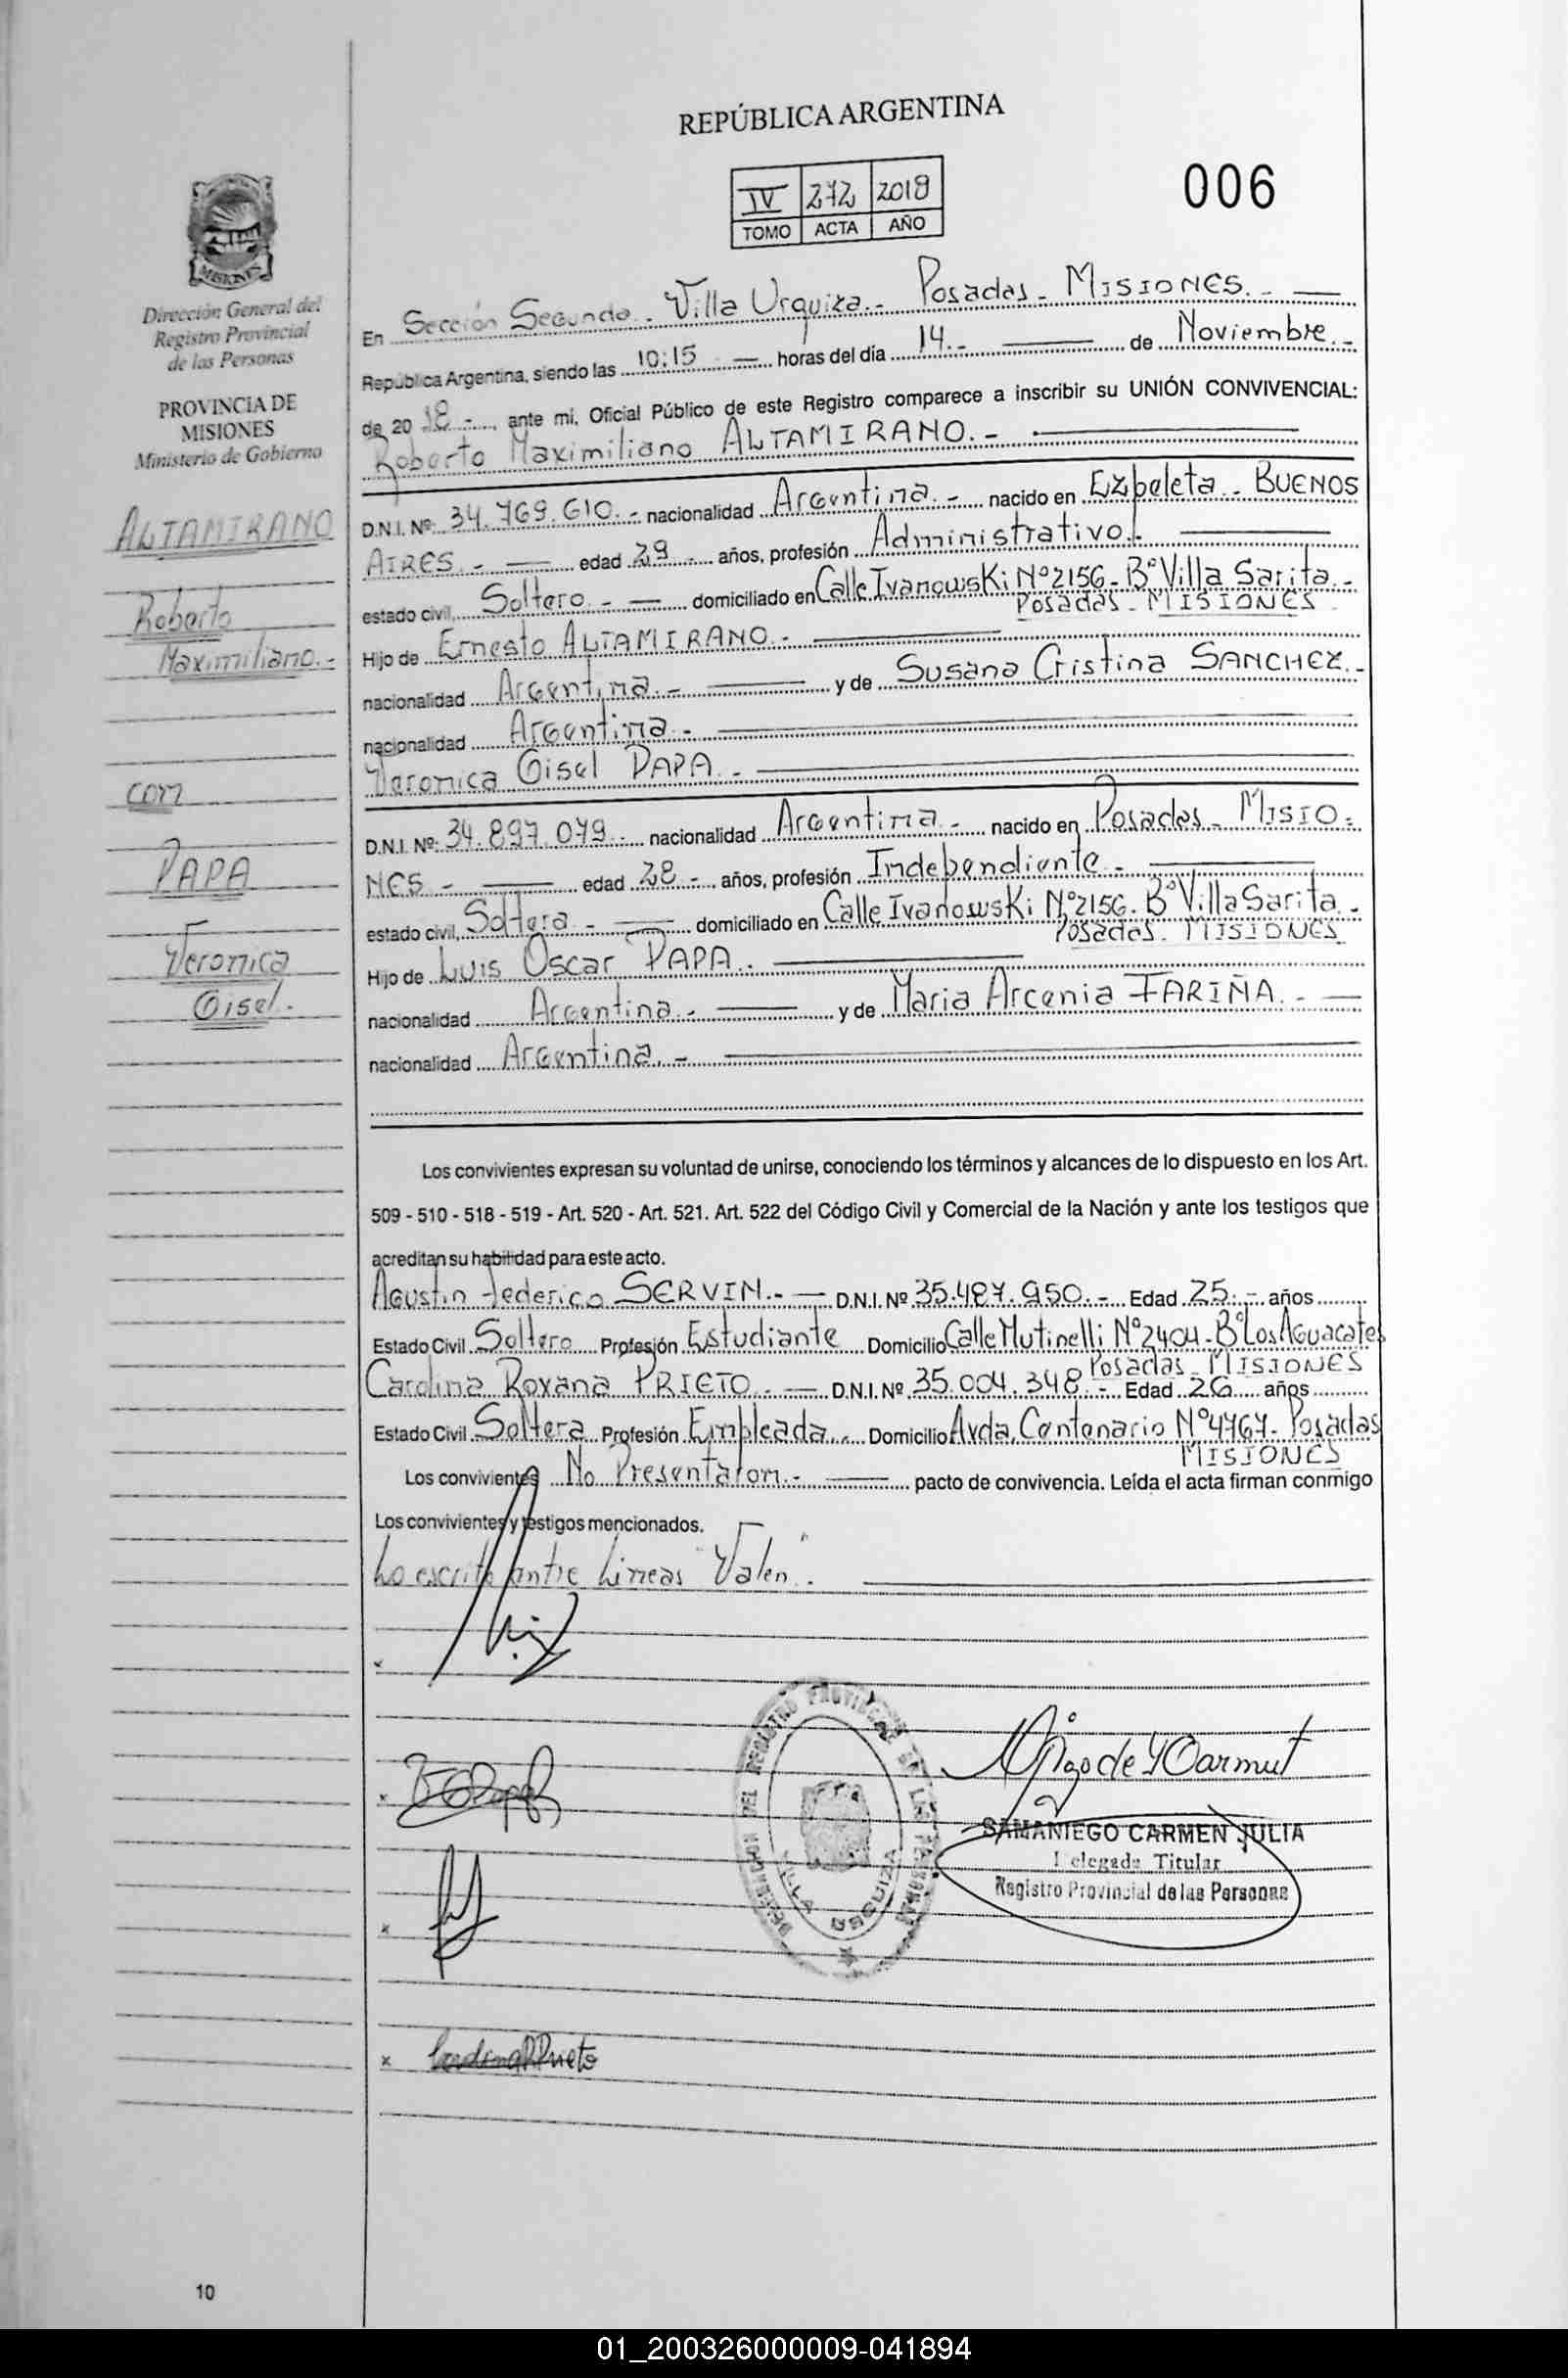 REPÚBLICA ARGENTINA
IV 272 2018
TOMO ACTA AÑO
006
MISIONES
Dirección General del
Registro Provincial
de las Personas
PROVINCIA DE
MISIONES
Ministerio de Gobierno
ALTAMIRANO
Roberto
Maximiliano.-
con
PAPA
Veronica
Gisel.
En Sección Segunda - Villa Urquiza.- Posadas - MISIONES.-
República Argentina, siendo las 10:15 horas del día 14.- de Noviembre.-
de 2018 -, ante mi, Oficial Público de este Registro comparece a inscribir su UNIÓN CONVIVENCIAL:
Roberto Maximiliano ALTAMIRANO.-
D.N.I. Nº: 34.769.610.- nacionalidad Argentina.- nacido en Ezpeleta - BUENOS
AIRES.- edad 29 - años, profesión Administrativo.-
estado civil, Soltero.- domiciliado en Calle Ivanowski Nº2156 - Bº Villa Sarita.-
Posadas - MISIONES -
Hijo de Ernesto ALTAMIRANO.-
nacionalidad Argentina.- y de Susana Cristina SANCHEZ.-
nacionalidad Argentina.-
Veronica Gisel PAPA.-
D.N.I. Nº: 34.897.079.- nacionalidad Argentina.- nacido en Posadas - MISIO-
NES - edad 28 -, años, profesión Independiente.-
estado civil, Soltera.- domiciliado en Calle Ivanowski Nº2156. Bº Villa Sarita.-
Posadas. MISIONES
Hijo de Luis Oscar PAPA.-
nacionalidad Argentina.- y de Maria Arcenia FARIÑA.-
nacionalidad Argentina.-
Los convivientes expresan su voluntad de unirse, conociendo los términos y alcances de lo dispuesto en los Art.
509 - 510 - 518 - 519 - Art. 520 - Art. 521. Art. 522 del Código Civil y Comercial de la Nación y ante los testigos que
acreditan su habilidad para este acto.
Agustin Federico SERVIN.- D.N.I. Nº 35.487.950.- Edad 25.- años
Estado Civil Soltero Profesión Estudiante Domicilio Calle Mutinelli Nº2404 - Bº Los Aguacates
Posadas - MISIONES
Carolina Roxana PRIETO.- D.N.I. Nº 35.004.348.- Edad 26 años
Estado Civil Soltera Profesión Empleada.- Domicilio Avda. Centenario Nº4767 - Posadas
MISIONES
Los convivientes No Presentaron.- pacto de convivencia. Leída el acta firman conmigo
Los convivientes y testigos mencionados.
Lo escrito entre Lineas "Valen".
REGISTRO PROVINCIAL DE LAS PERSONAS
VILLA URQUIZA
SAMANIEGO CARMEN JULIA
Delegada Titular
Registro Provincial de las Personas
10
01_200326000009-041894